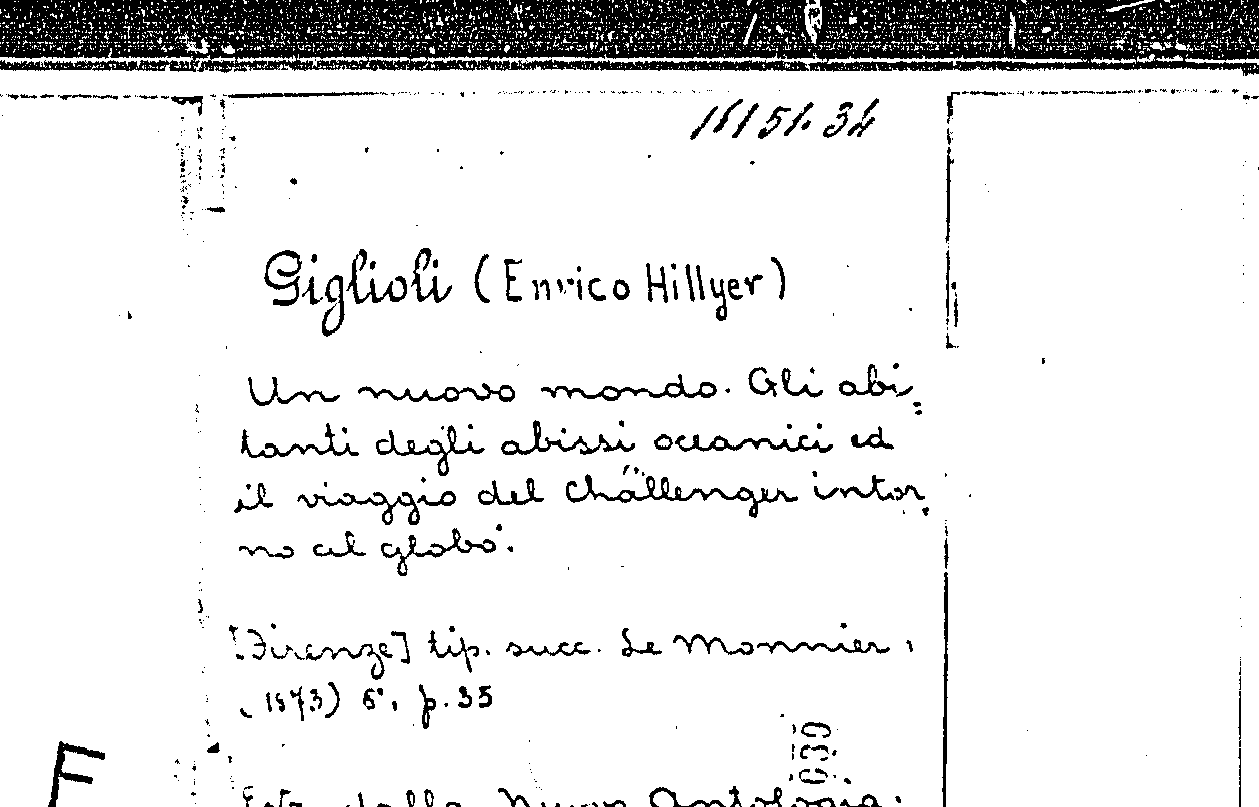 16151.34
Giglioli (Enrico Hillyer)
Un nuovo mondo. Gli abi=
tanti degli abissi oceanici ed
il viaggio del "Challenger intor
no al globo".
[Firenze] tip. succ. Le Monnier,
(1873) 8°, p. 35
dalla Nuova Antologia.
F